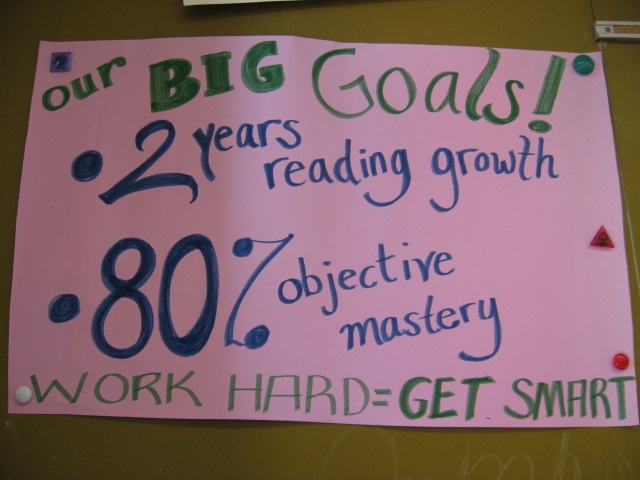 our BIG Goals!
• 2 years reading growth
• 80% objective mastery
WORK HARD = GET SMART